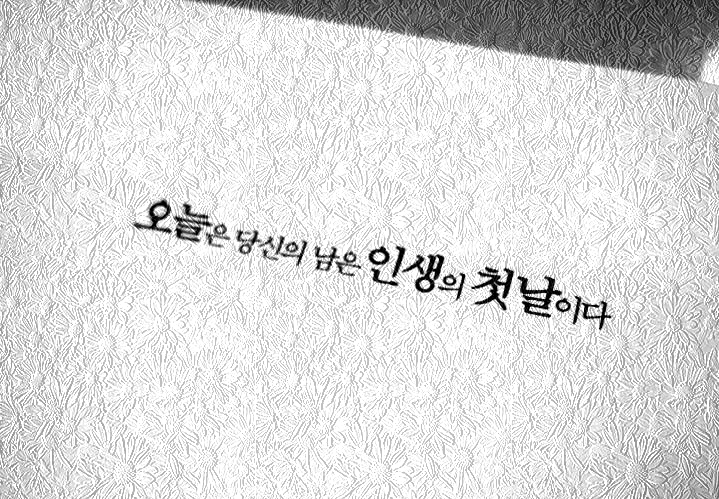 오늘은 당신의 남은 인생의 첫날이다